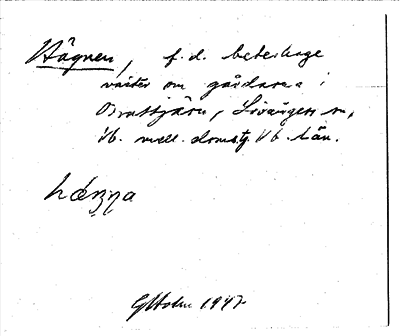 Hägnen, f.d. beteshage
väster om gårdarna i
Brattjärn, Lövångers sn,
Vb. mell. doms. Vb. län.
hǽŋna
G Holm 1947